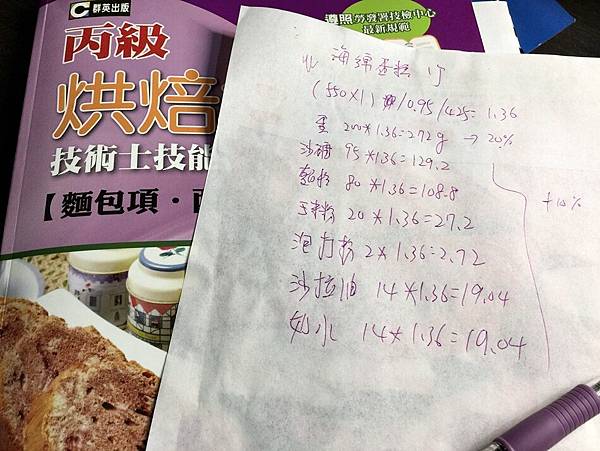 群英出版
丙級
烘焙
技術士技能
【麵包項・
遵照勞發署技檢中心
最新規範
海綿蛋糕
(550×1) /0.95/425=1.36
蛋 200*1.36=272g → 20%
沙糖 95*1.36=129.2
麵粉 80*1.36=108.8
玉米粉 20*1.36=27.2
泡打粉 2*1.36=2.72
沙拉油 14*1.36=19.04
奶水 14*1.36=19.04
+10%